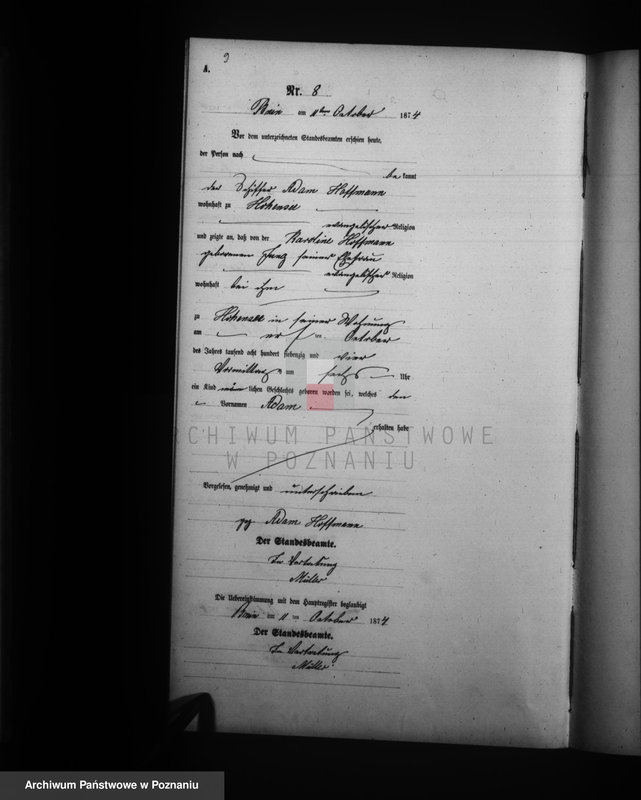 9
A.
Nr. 8
Bnin am 11ten October 1874
Vor dem unterzeichneten Standesbeamten erschien heute,
der Person nach
bekannt
der Schiffer Adam Hoffmann
wohnhaft zu Hohensee
evangelischer Religion
und zeigte an, daß von der Karoline Hoffmann
geborenen seiner Ehefrau
evangelischer Religion
wohnhaft bei ihm
zu Hohensee in seiner Wohnung
am ten October
des Jahres tausend acht hundert siebenzig und vier
Vormittags um sechs Uhr
ein Kind männlichen Geschlechts geboren worden sei, welches den
Vornamen Adam
erhalten habe
ARCHIWUM PAŃSTWOWE
W POZNANIU
Vorgelesen, genehmigt und unterschrieben
gez Adam Hoffmann
Der Standesbeamte.
In Vertretung
Müller
Die Uebereinstimmung mit dem Hauptregister beglaubigt
Bnin am 11 ten October 1874
Der Standesbeamte.
In Vertretung
Müller
Archiwum Państwowe w Poznaniu